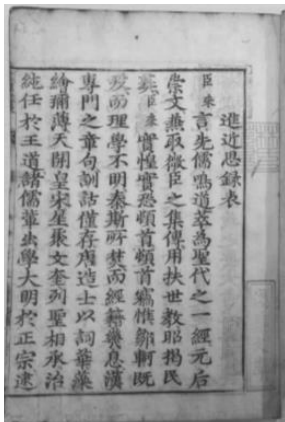 進近思錄表
臣采言先儒鳴道萃為聖代之一經元后
崇文兼取微臣之集傳用扶世教昭揭民
彝臣采實惶實恐頓首頓首竊惟鄒軻既
歿而理學不明秦斯所焚而經籍幾息漢
專門之章句訓詁僅存唐造士以詞華藻
繪彌薄天開皇宋星聚文奎列聖相承治
純任於王道諸儒輩出學大明於正宗逮